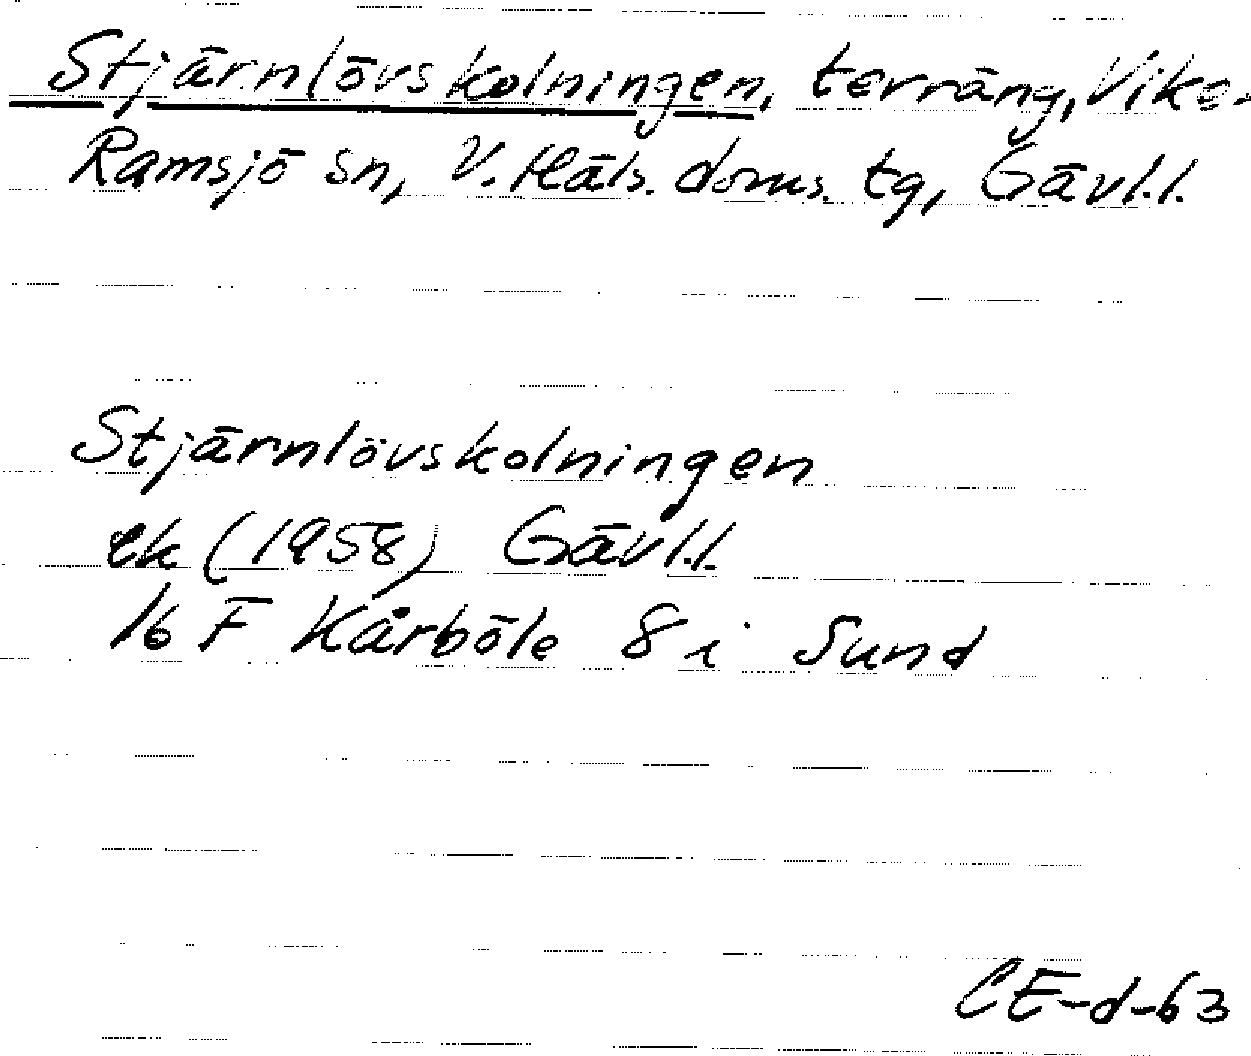 Stjärnlövskolningen, terräng, Viken
Ramsjö sn, V. Häls. doms. tg, Gävl.l.
Stjärnlövskolningen
ek (1958) Gävl.l.
16 F Kårböle 8 i Sund
CE-d-63